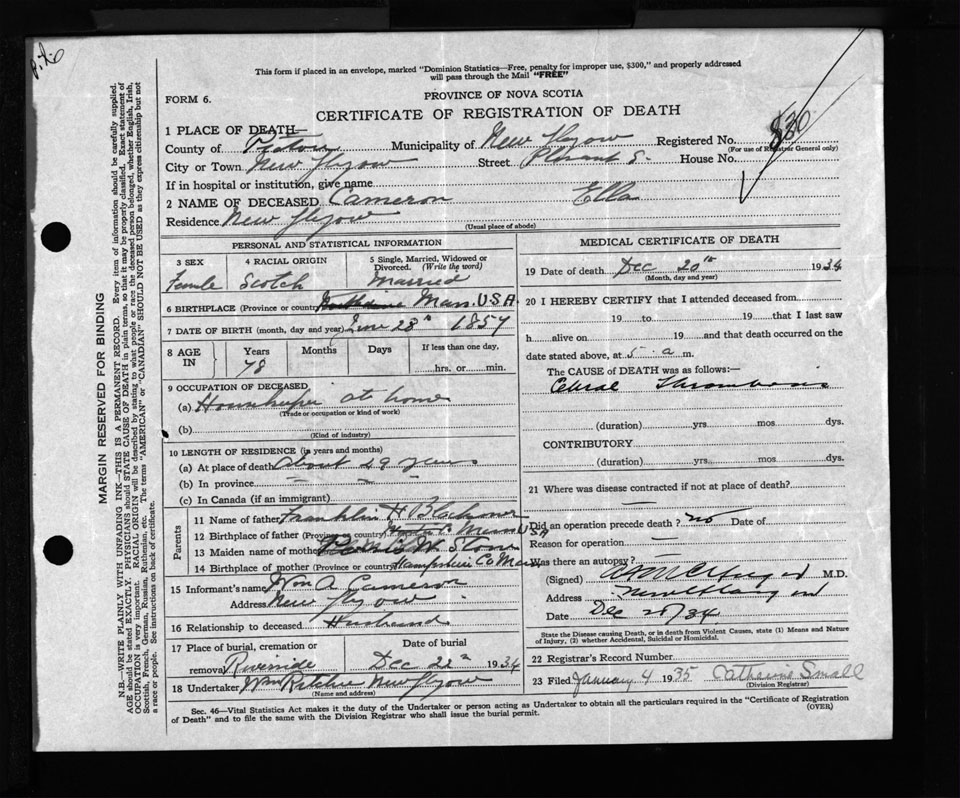 This form if placed in an envelope, marked "Dominion Statistics—Free, penalty for improper use, $300," and properly addressed
will pass through the Mail "FREE"
FORM 6.
PROVINCE OF NOVA SCOTIA
CERTIFICATE OF REGISTRATION OF DEATH
1 PLACE OF DEATH—
County of Pictou Municipality of New Glasgow Registered No.
(For use of Registrar General only)
City or Town New Glasgow Street Pleasant S. House No.
If in hospital or institution, give name
2 NAME OF DECEASED Cameron Ella
Residence New Glasgow
(Usual place of abode)
PERSONAL AND STATISTICAL INFORMATION
3 SEX
Female
4 RACIAL ORIGIN
Scotch
5 Single, Married, Widowed or
Divorced. (Write the word)
Married
6 BIRTHPLACE (Province or country) Mass. USA
7 DATE OF BIRTH (month, day and year) June 28th
8 AGE IN
Years Months Days If less than one day,
78 hrs. or min.
9 OCCUPATION OF DECEASED
(a) Housekeeper at home
(Trade or occupation or kind of work)
(b)
(Kind of industry)
10 LENGTH OF RESIDENCE (in years and months)
(a) At place of death about 49 years
(b) In province — — —
(c) In Canada (if an immigrant)
Parents
11 Name of father Franklin H
12 Birthplace of father (Province or country) Mass USA
13 Maiden name of mother W. Stone
14 Birthplace of mother (Province or country) Hampshire Co Mass
15 Informant's name Wm A Cameron
Address New Glasgow
16 Relationship to deceased Husband
17 Place of burial, cremation or Date of burial
removal Riverside Dec 22nd 1934
18 Undertaker Wm Ritchie New Glasgow
(Name and address)
MEDICAL CERTIFICATE OF DEATH
19 Date of death Dec 20th 1934
(Month, day and year)
20 I HEREBY CERTIFY that I attended deceased from
19 to 19 that I last saw
h alive on 19 and that death occurred on the
date stated above, at 5 a m.
The CAUSE of DEATH was as follows:—
Cebral Thrombosis
(duration) yrs. mos. dys.
CONTRIBUTORY
(duration) yrs. mos. dys.
21 Where was disease contracted if not at place of death?
—
Did an operation precede death? no Date of
Reason for operation —
Was there an autopsy? —
(Signed) M.D.
Address New Glasgow
Date Dec 20/34
State the Disease causing Death, or in death from Violent Causes, state (1) Means and Nature
of Injury, (2) whether Accidental, Suicidal or Homicidal.
22 Registrar's Record Number
23 Filed January 4 1935 Catherine Small
(Division Registrar)
Sec. 46—Vital Statistics Act makes it the duty of the Undertaker or person acting as Undertaker to obtain all the particulars required in the "Certificate of Registration
of Death" and to file the same with the Division Registrar who shall issue the burial permit. (OVER)
MARGIN RESERVED FOR BINDING
N.B.—WRITE PLAINLY WITH UNFADING INK—THIS IS A PERMANENT RECORD. Every item of information should be carefully supplied.
AGE should be stated EXACTLY. PHYSICIANS should STATE CAUSE OF DEATH in plain terms, so that it may be properly classified. Exact statement of
OCCUPATION is very important. RACIAL ORIGIN will be described by stating to what people or race the deceased person belonged, whether English, Irish,
Scottish, French, German, Russian, Ruthenian, etc. The terms "AMERICAN" or "CANADIAN" SHOULD NOT BE USED as they express citizenship but not
a race or people. See instructions on back of certificate.